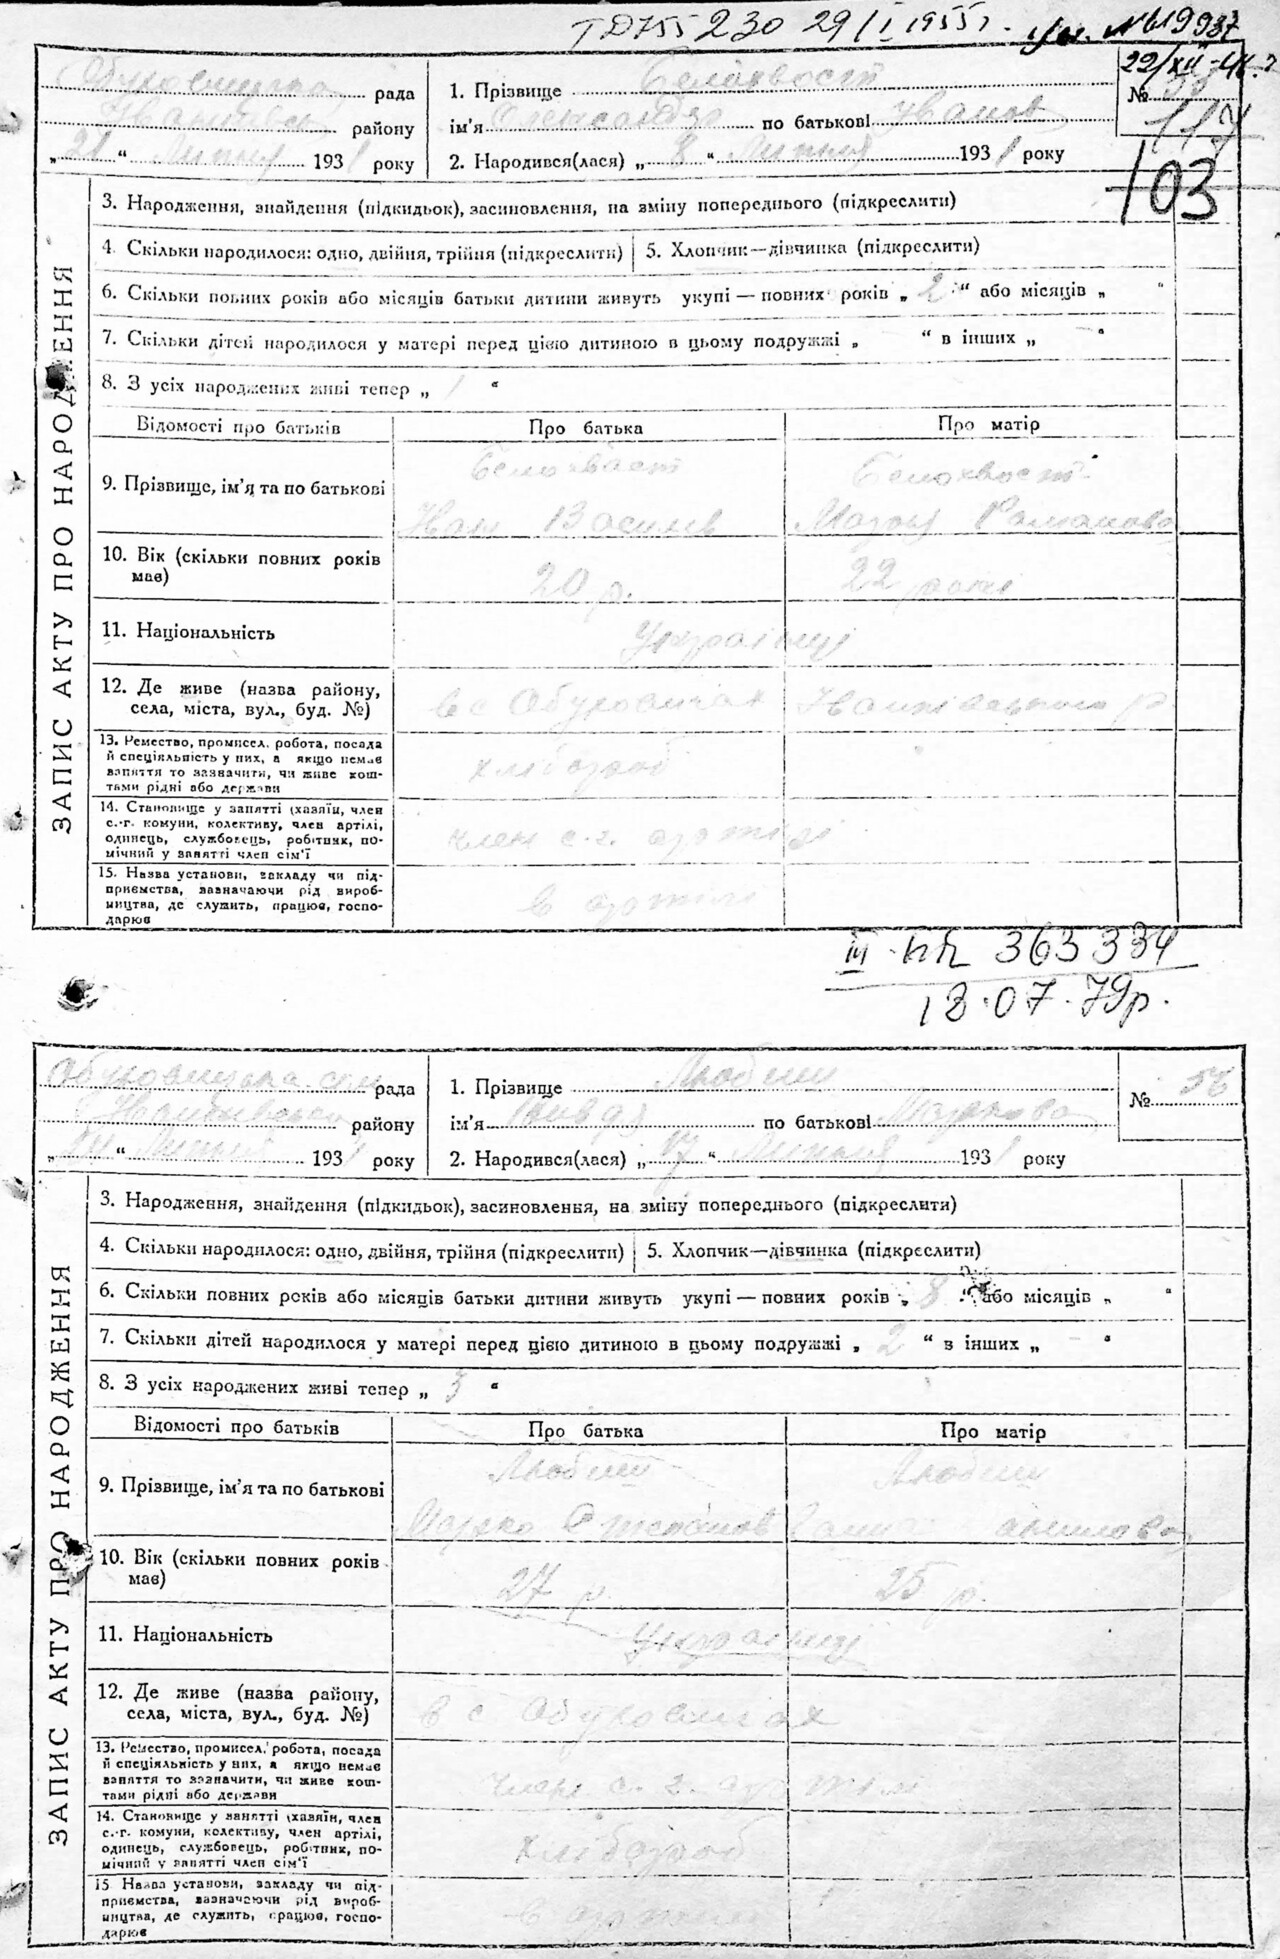 230 29/I 1955 г.
22/XII
Обуховицька рада 1. Прізвище Белохвост №
району ім'я Олександр по батькові Іванов 117
„21“ Липня 1931 року 2. Народився(лася) „8“ Липня 1931 року 103
ЗАПИС АКТУ ПРО НАРОДЖЕННЯ
3. Народження, знайдення (підкидьок), засиновлення, на зміну попереднього (підкреслити)
4. Скільки народилося: одно, двійня, трійня (підкреслити) 5. Хлопчик—дівчинка (підкреслити)
6. Скільки повних років або місяців батьки дитини живуть укупі — повних років „ 2 “ або місяців „ “
7. Скільки дітей народилося у матері перед цією дитиною в цьому подружжі „ “ в інших „ “
8. З усіх народжених живі тепер „ 1 “
Відомості про батьків Про батька Про матір
Белохвост Белохвост
9. Прізвище, ім'я та по батькові
Іван Василів Романова
10. Вік (скільки повних років має) 20 р. 22 роки
11. Національність Українці
12. Де живе (назва району, села, міста, вул., буд. №) в с Обуховичах Іванківського р.
13. Ремество, промисел, робота, посада
й спеціяльність у них, а якщо немає
заняття то зазначити, чи живе кош-
тами рідні або держави
хлібороб
14. Становище у занятті (хазяїн, член
с.-г. комуни, колективу, член артілі,
одинець, службовець, робітник, по-
мічний у занятті член сім'ї
член с.г. артілі
15. Назва установи, закладу чи під-
приємства, зазначаючи рід вироб-
ництва, де служить, працює, госпо-
дарює
в артілі
363334
18.07.79р.
Обуховицька сіль рада 1. Прізвище Любич № 56
району ім'я по батькові Маркова
„ “ Липня 1931 року 2. Народився(лася) „17“ Липня 1931 року
ЗАПИС АКТУ ПРО НАРОДЖЕННЯ
3. Народження, знайдення (підкидьок), засиновлення, на зміну попереднього (підкреслити)
4. Скільки народилося: одно, двійня, трійня (підкреслити) 5. Хлопчик—дівчинка (підкреслити)
6. Скільки повних років або місяців батьки дитини живуть укупі — повних років „ 8 “ або місяців „ “
7. Скільки дітей народилося у матері перед цією дитиною в цьому подружжі „ 2 “ в інших „ - “
8. З усіх народжених живі тепер „ 3 “
Відомості про батьків Про батька Про матір
Любич Любич
9. Прізвище, ім'я та по батькові
Марко Степанов
10. Вік (скільки повних років має) 27 р. 25 р.
11. Національність Українці
12. Де живе (назва району, села, міста, вул., буд. №) в с Обуховичах
13. Ремество, промисел, робота, посада
й спеціяльність у них, а якщо немає
заняття то зазначити, чи живе кош-
тами рідні або держави
член с. г. артілі
14. Становище у занятті (хазяїн, член
с.-г. комуни, колективу, член артілі,
одинець, службовець, робітник, по-
мічний у занятті член сім'ї
хлібороб
15 Назва установи, закладу чи під-
приємства, зазначаючи рід вироб-
ництва, де служить, працює, госпо-
дарює
в артілі